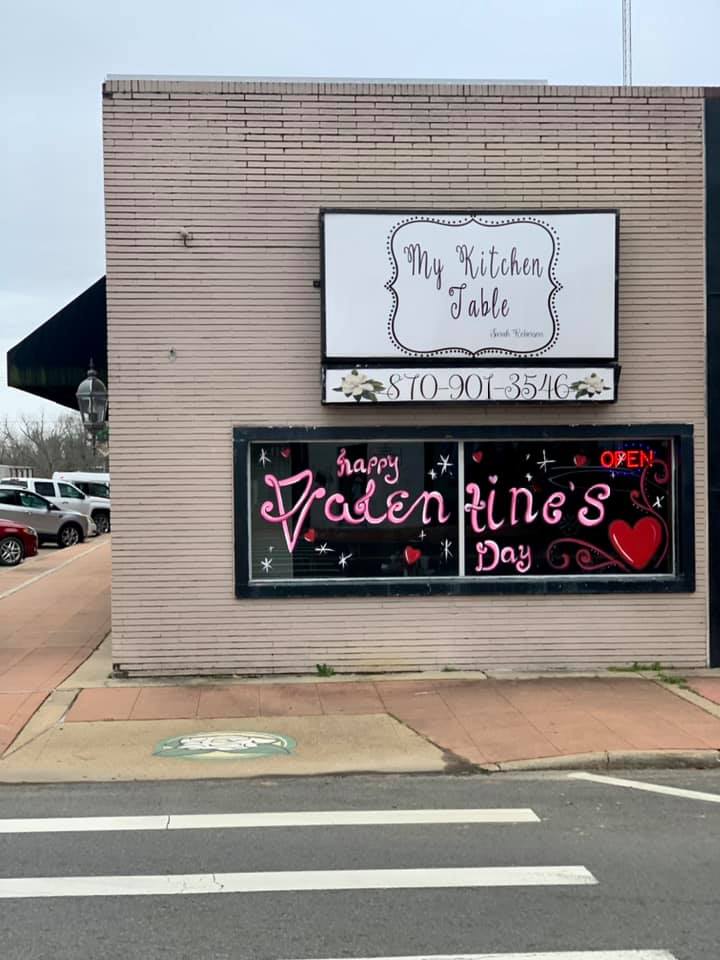 My Kitchen
Table
Sarah Roberson
870-901-3546
OPEN
happy
Valentine's
Day